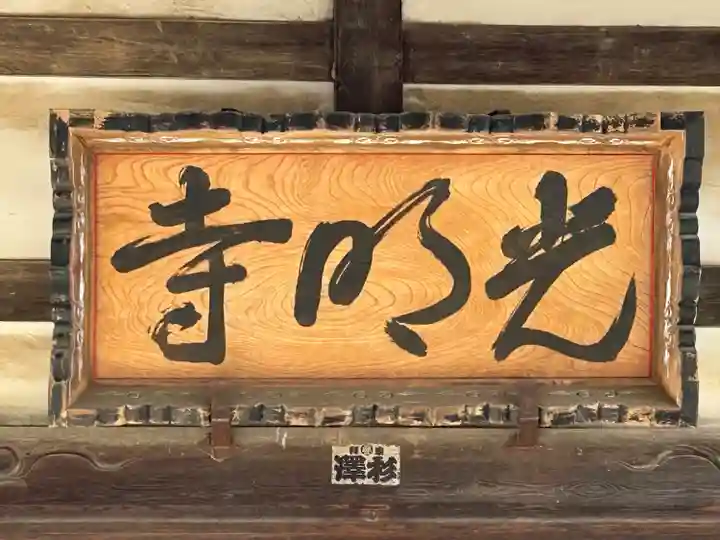 光明寺
杉澤